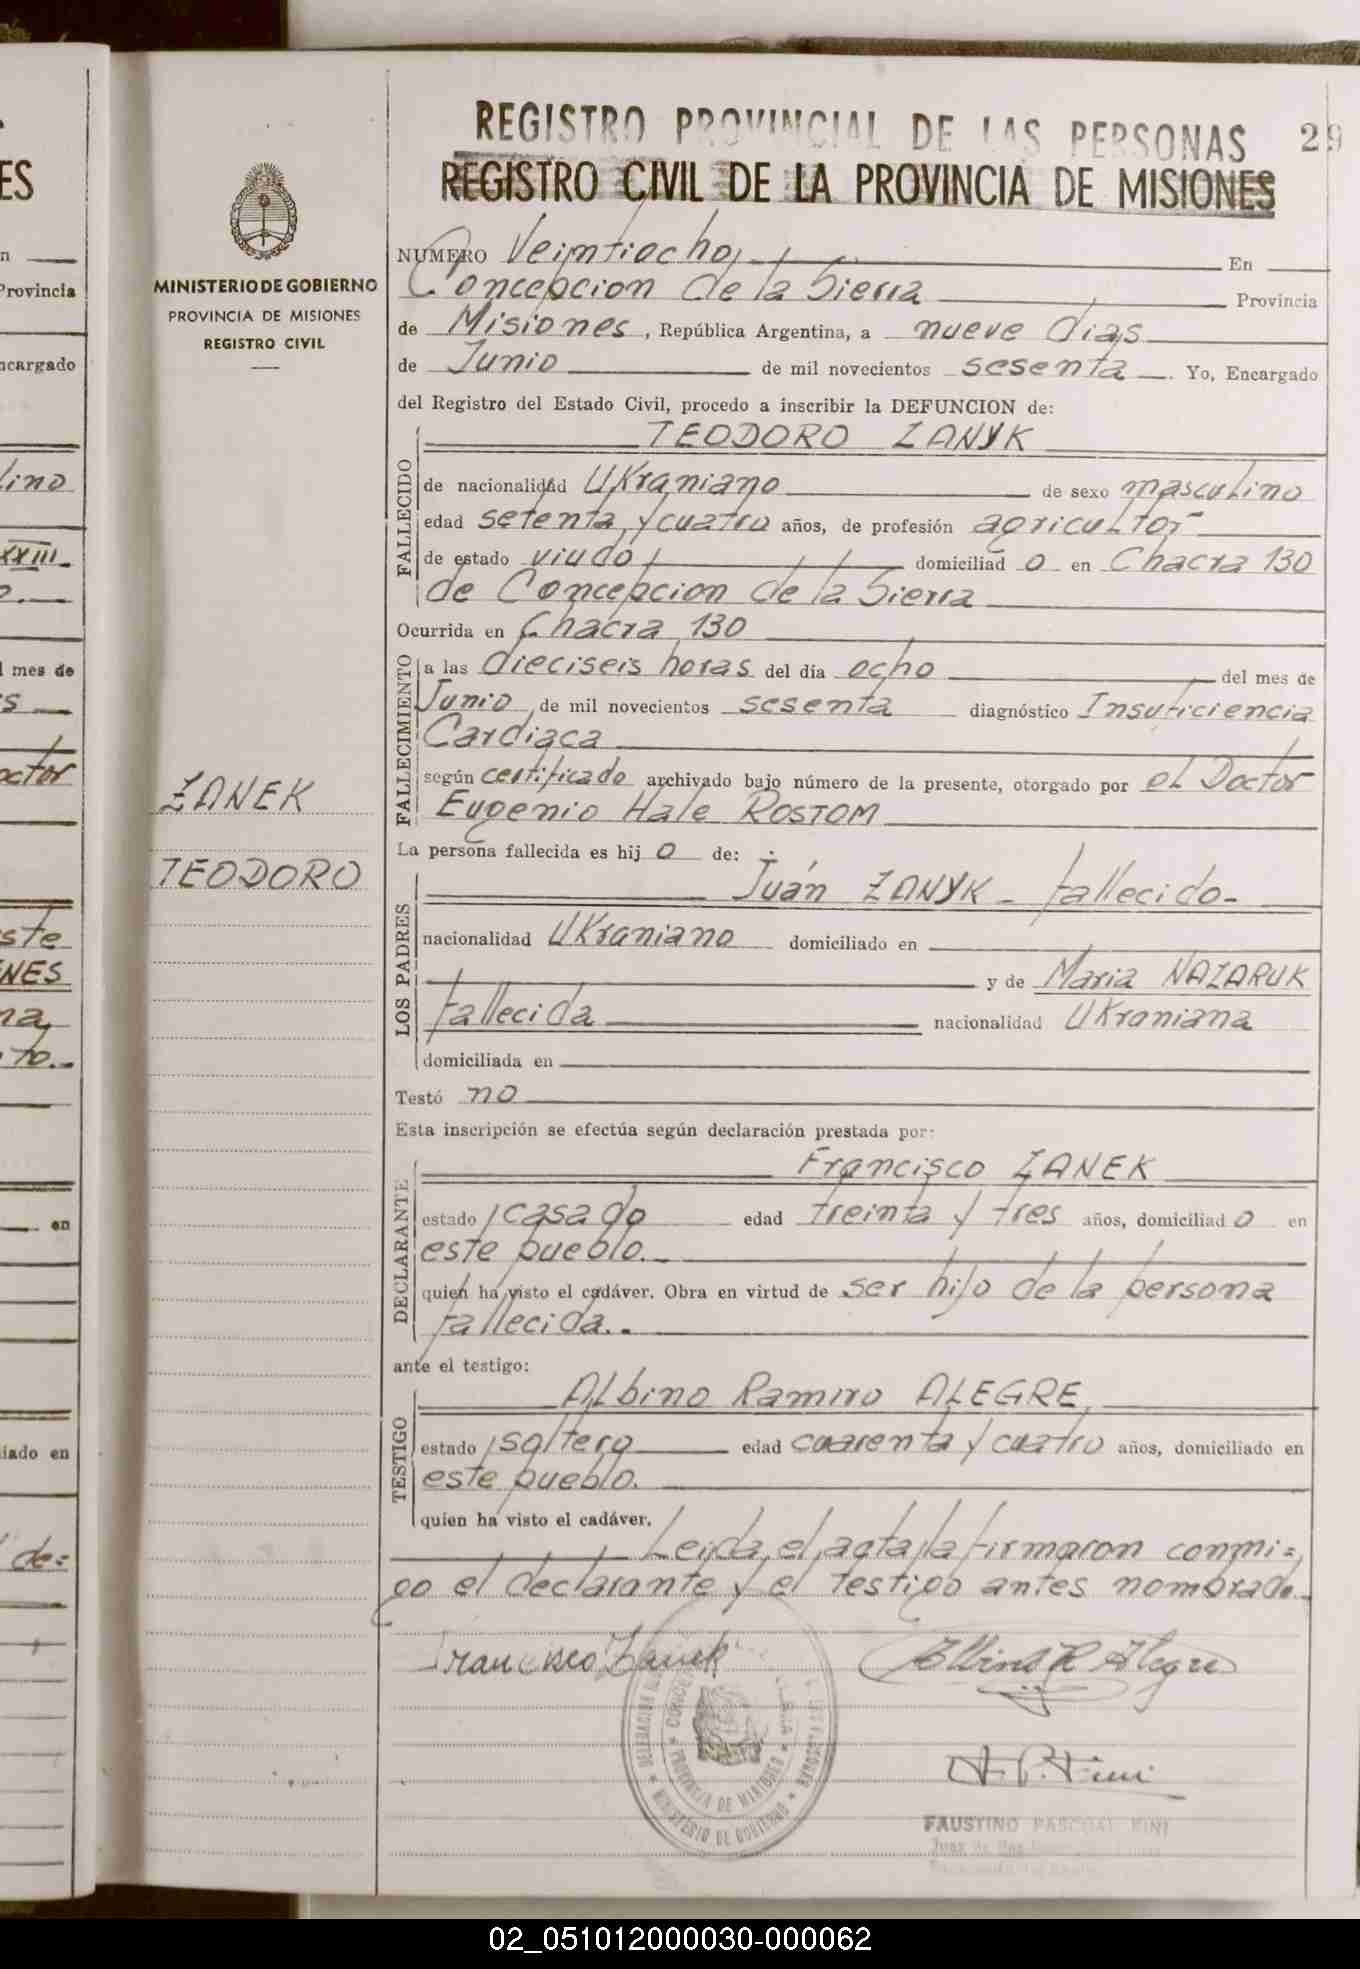 REGISTRO PROVINCIAL DE LAS PERSONAS 29
REGISTRO CIVIL DE LA PROVINCIA DE MISIONES
MINISTERIO DE GOBIERNO
PROVINCIA DE MISIONES
REGISTRO CIVIL
ZANEK
TEODORO
NUMERO Veintiocho, En
Concepcion de la Sierra Provincia
de Misiones, República Argentina, a nueve dias
de Junio de mil novecientos sesenta. Yo, Encargado
del Registro del Estado Civil, procedo a inscribir la DEFUNCION de:
TEODORO ZANYK
FALLECIDO
de nacionalidad Ukraniano de sexo masculino
edad setenta y cuatro años, de profesión agricultor
de estado viudo, domiciliad o en Chacra 130
de Concepcion de la Sierra
Ocurrida en Chacra 130
FALLECIMIENTO
a las dieciseis horas del día ocho del mes de
Junio de mil novecientos sesenta diagnóstico Insuficiencia
Cardiaca
según certificado archivado bajo número de la presente, otorgado por el Doctor
Eugenio Hale ROSTOM
La persona fallecida es hij o de:
LOS PADRES
Juán ZANYK - fallecido-
nacionalidad Ukraniano domiciliado en
y de Maria NAZARUK
fallecida nacionalidad Ukraniana
domiciliada en
Testó no
Esta inscripción se efectúa según declaración prestada por:
DECLARANTE
Francisco ZANEK
estado casado edad treinta y tres años, domiciliad o en
este pueblo.
quien ha visto el cadáver. Obra en virtud de ser hijo de la persona
fallecida..
ante el testigo:
TESTIGO
Albino Ramiro ALEGRE
estado soltero edad cuarenta y cuatro años, domiciliado en
este pueblo.
quien ha visto el cadáver.
Leida el acta la firmaron conmi=
go el declarante y el testigo antes nombrado.
Francisco Zanek Albino R Alegre
MINISTERIO DE GOBIERNO
PROVINCIA DE MISIONES
FAUSTINO PASCUAL FINI
ES
n
Provincia
ncargado
lino
XXIII.
l mes de
s
octor
ste
NES
na,
to.-
en
iado en
de=
02_051012000030-000062